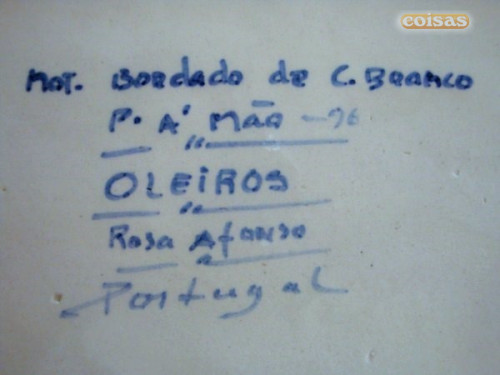 coisas
MOT. BORDADO DE C. BRANCO
P. A' MÃO - 96
OLEIROS
Rosa Afonso
Portugal